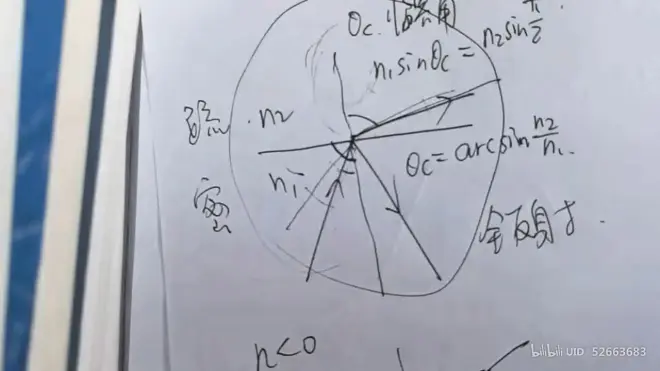 θc 临界角
n₁sinθc = n₂sin π/2
疏 n₂
θc = arcsin n₂/n₁
n₁
密
全反射
n<0
bilibili UID 52663683